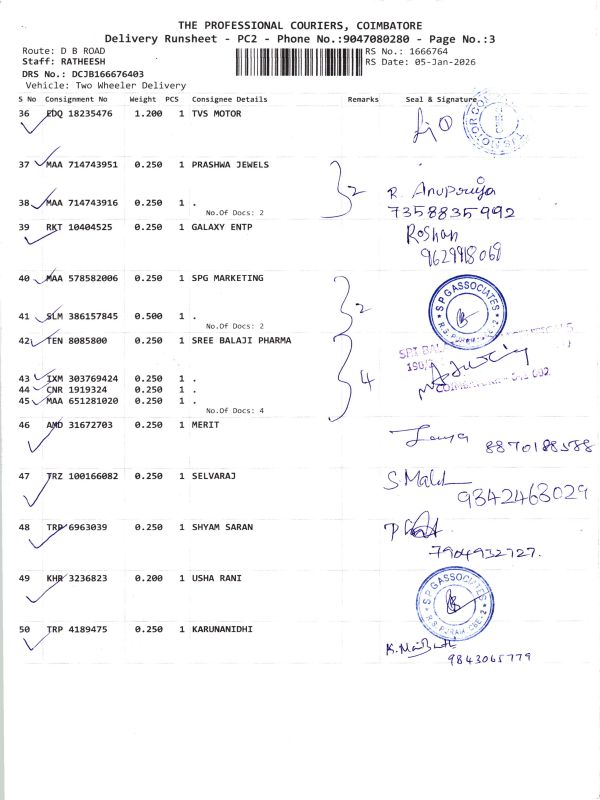 THE PROFESSIONAL COURIERS, COIMBATORE
Delivery Runsheet - PC2 - Phone No.:9047080280 - Page No.:3
Route: D B ROAD
RS No.: 1666764
Staff: RATHEESH
RS Date: 05-Jan-2026
DRS No.: DCJB166676403
Vehicle: Two Wheeler Delivery
S No Consignment No Weight PCS Consignee Details Remarks Seal & Signature
36 EDQ 18235476 1.200 1 TVS MOTOR
37 MAA 714743951 0.250 1 PRASHWA JEWELS
2
R. Anupouja
38 MAA 714743916 0.250 1 .
7358835992
No.Of Docs: 2
39 RKT 10404525 0.250 1 GALAXY ENTP
Roshan
9629918068
40 MAA 578582006 0.250 1 SPG MARKETING
2
SPG ASSOCIATES
R.S. PURAM CBE-2
41 SLM 386157845 0.500 1 .
No.Of Docs: 2
42 TEN 8085800 0.250 1 SREE BALAJI PHARMA
4
43 IXM 303769424 0.250 1 .
44 CNR 1919324 0.250 1 .
45 MAA 651281020 0.250 1 .
No.Of Docs: 4
46 AMD 31672703 0.250 1 MERIT
8870188588
47 TRZ 100166082 0.250 1 SELVARAJ
9842463029
48 TRP 6963039 0.250 1 SHYAM SARAN
7904932727.
49 KHR 3236823 0.200 1 USHA RANI
SPG ASSOCIATES
R.S. PURAM CBE-2
50 TRP 4189475 0.250 1 KARUNANIDHI
9843065779